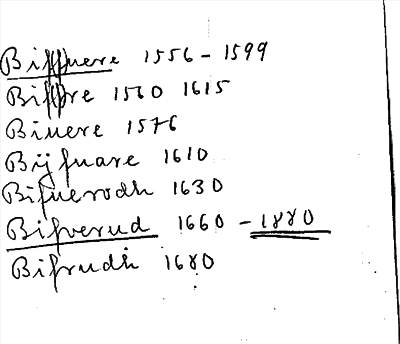 Biffuere 1556 - 1599
Biffre 1560 1615
Biuere 1576
Bijfuare 1610
Bifuerodh 1630
Bifverud 1660 - 1880
Bifrudh 1680